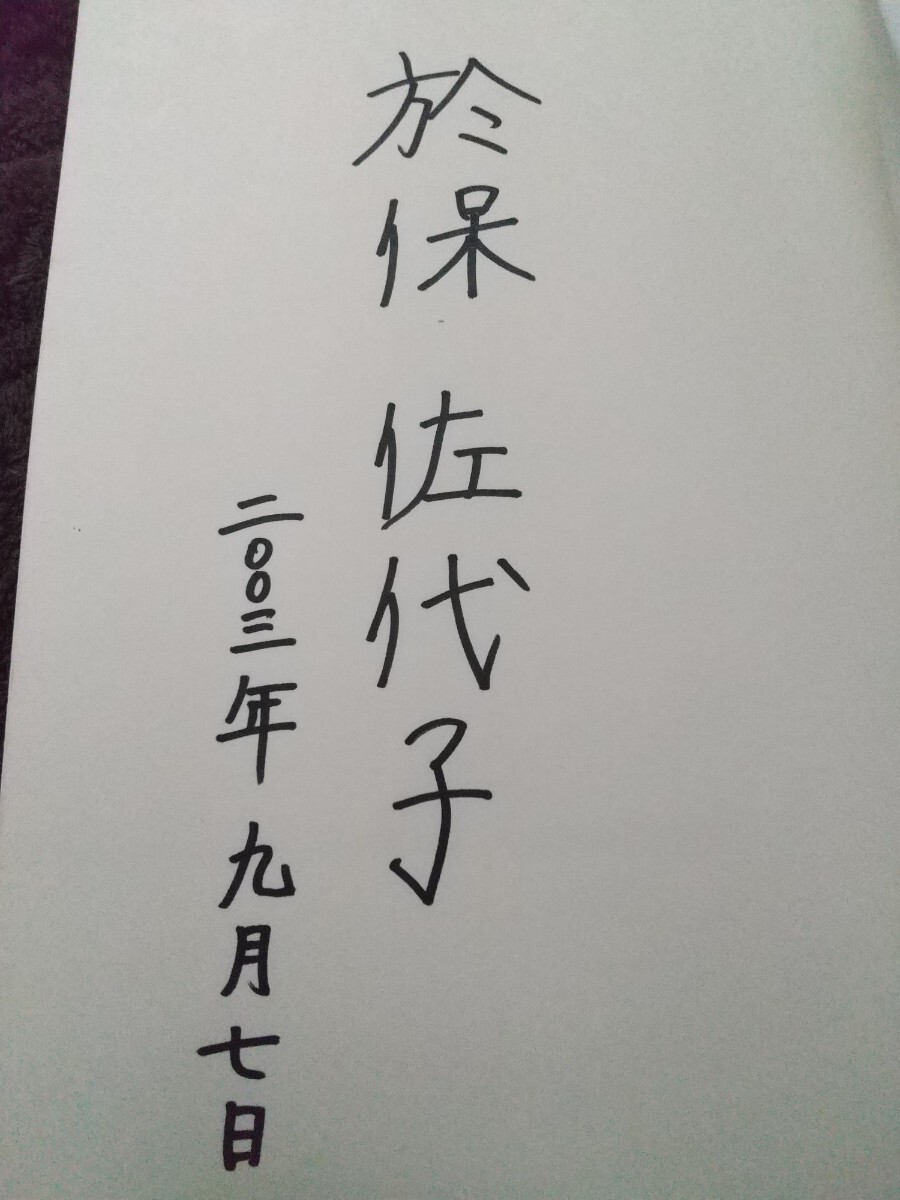 於保 佐代子
二〇〇三年 九月七日